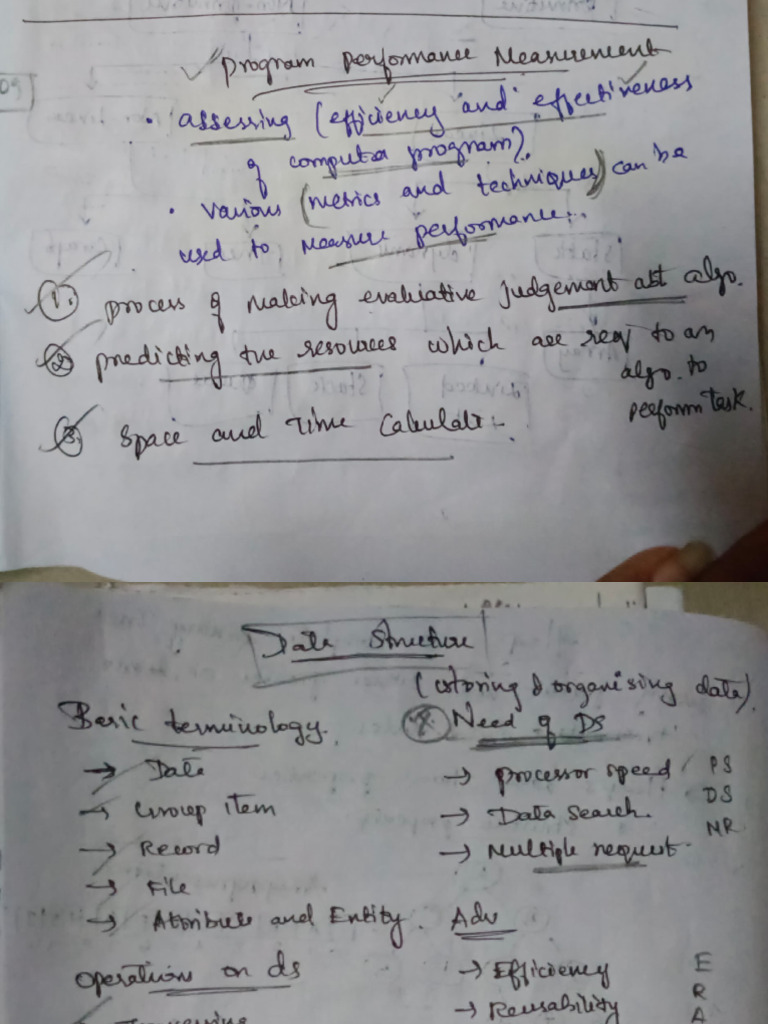 Program Performance Measurement
• assessing (efficiency and effectiveness
of computer program).
• various (metrics and techniques) can be
used to measure performance.
1. process of making evaluative judgement abt algo.
2. predicting the resources which are req to an
algo. to
perform task.
3. Space and Time Calculat:-
Data Structure
(storing & organising data).
Basic terminology.
→ Data
→ Group item
→ Record
→ File
→ Attribute and Entity.
Need of DS
→ processor speed PS
→ Data Search. DS
→ Multiple request. MR
Adv
→ Efficiency E
→ Reusability R
A
Operation on ds